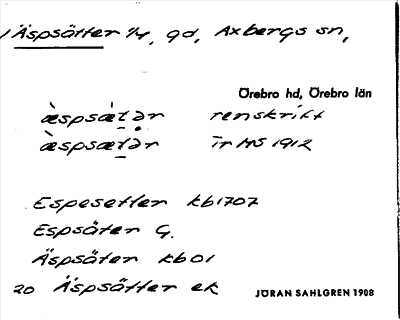 Äspsätter 1/4, gd, Axbergs sn,
Örebro hd, Örebro län
æ̀spsæ̀tər renskrift
æ̀spsætər ÏrMS 1912
Espesetter kb1707
Espsäter G.
Äspsäter kb01
20 Äspsätter ek
JÖRAN SAHLGREN 1908